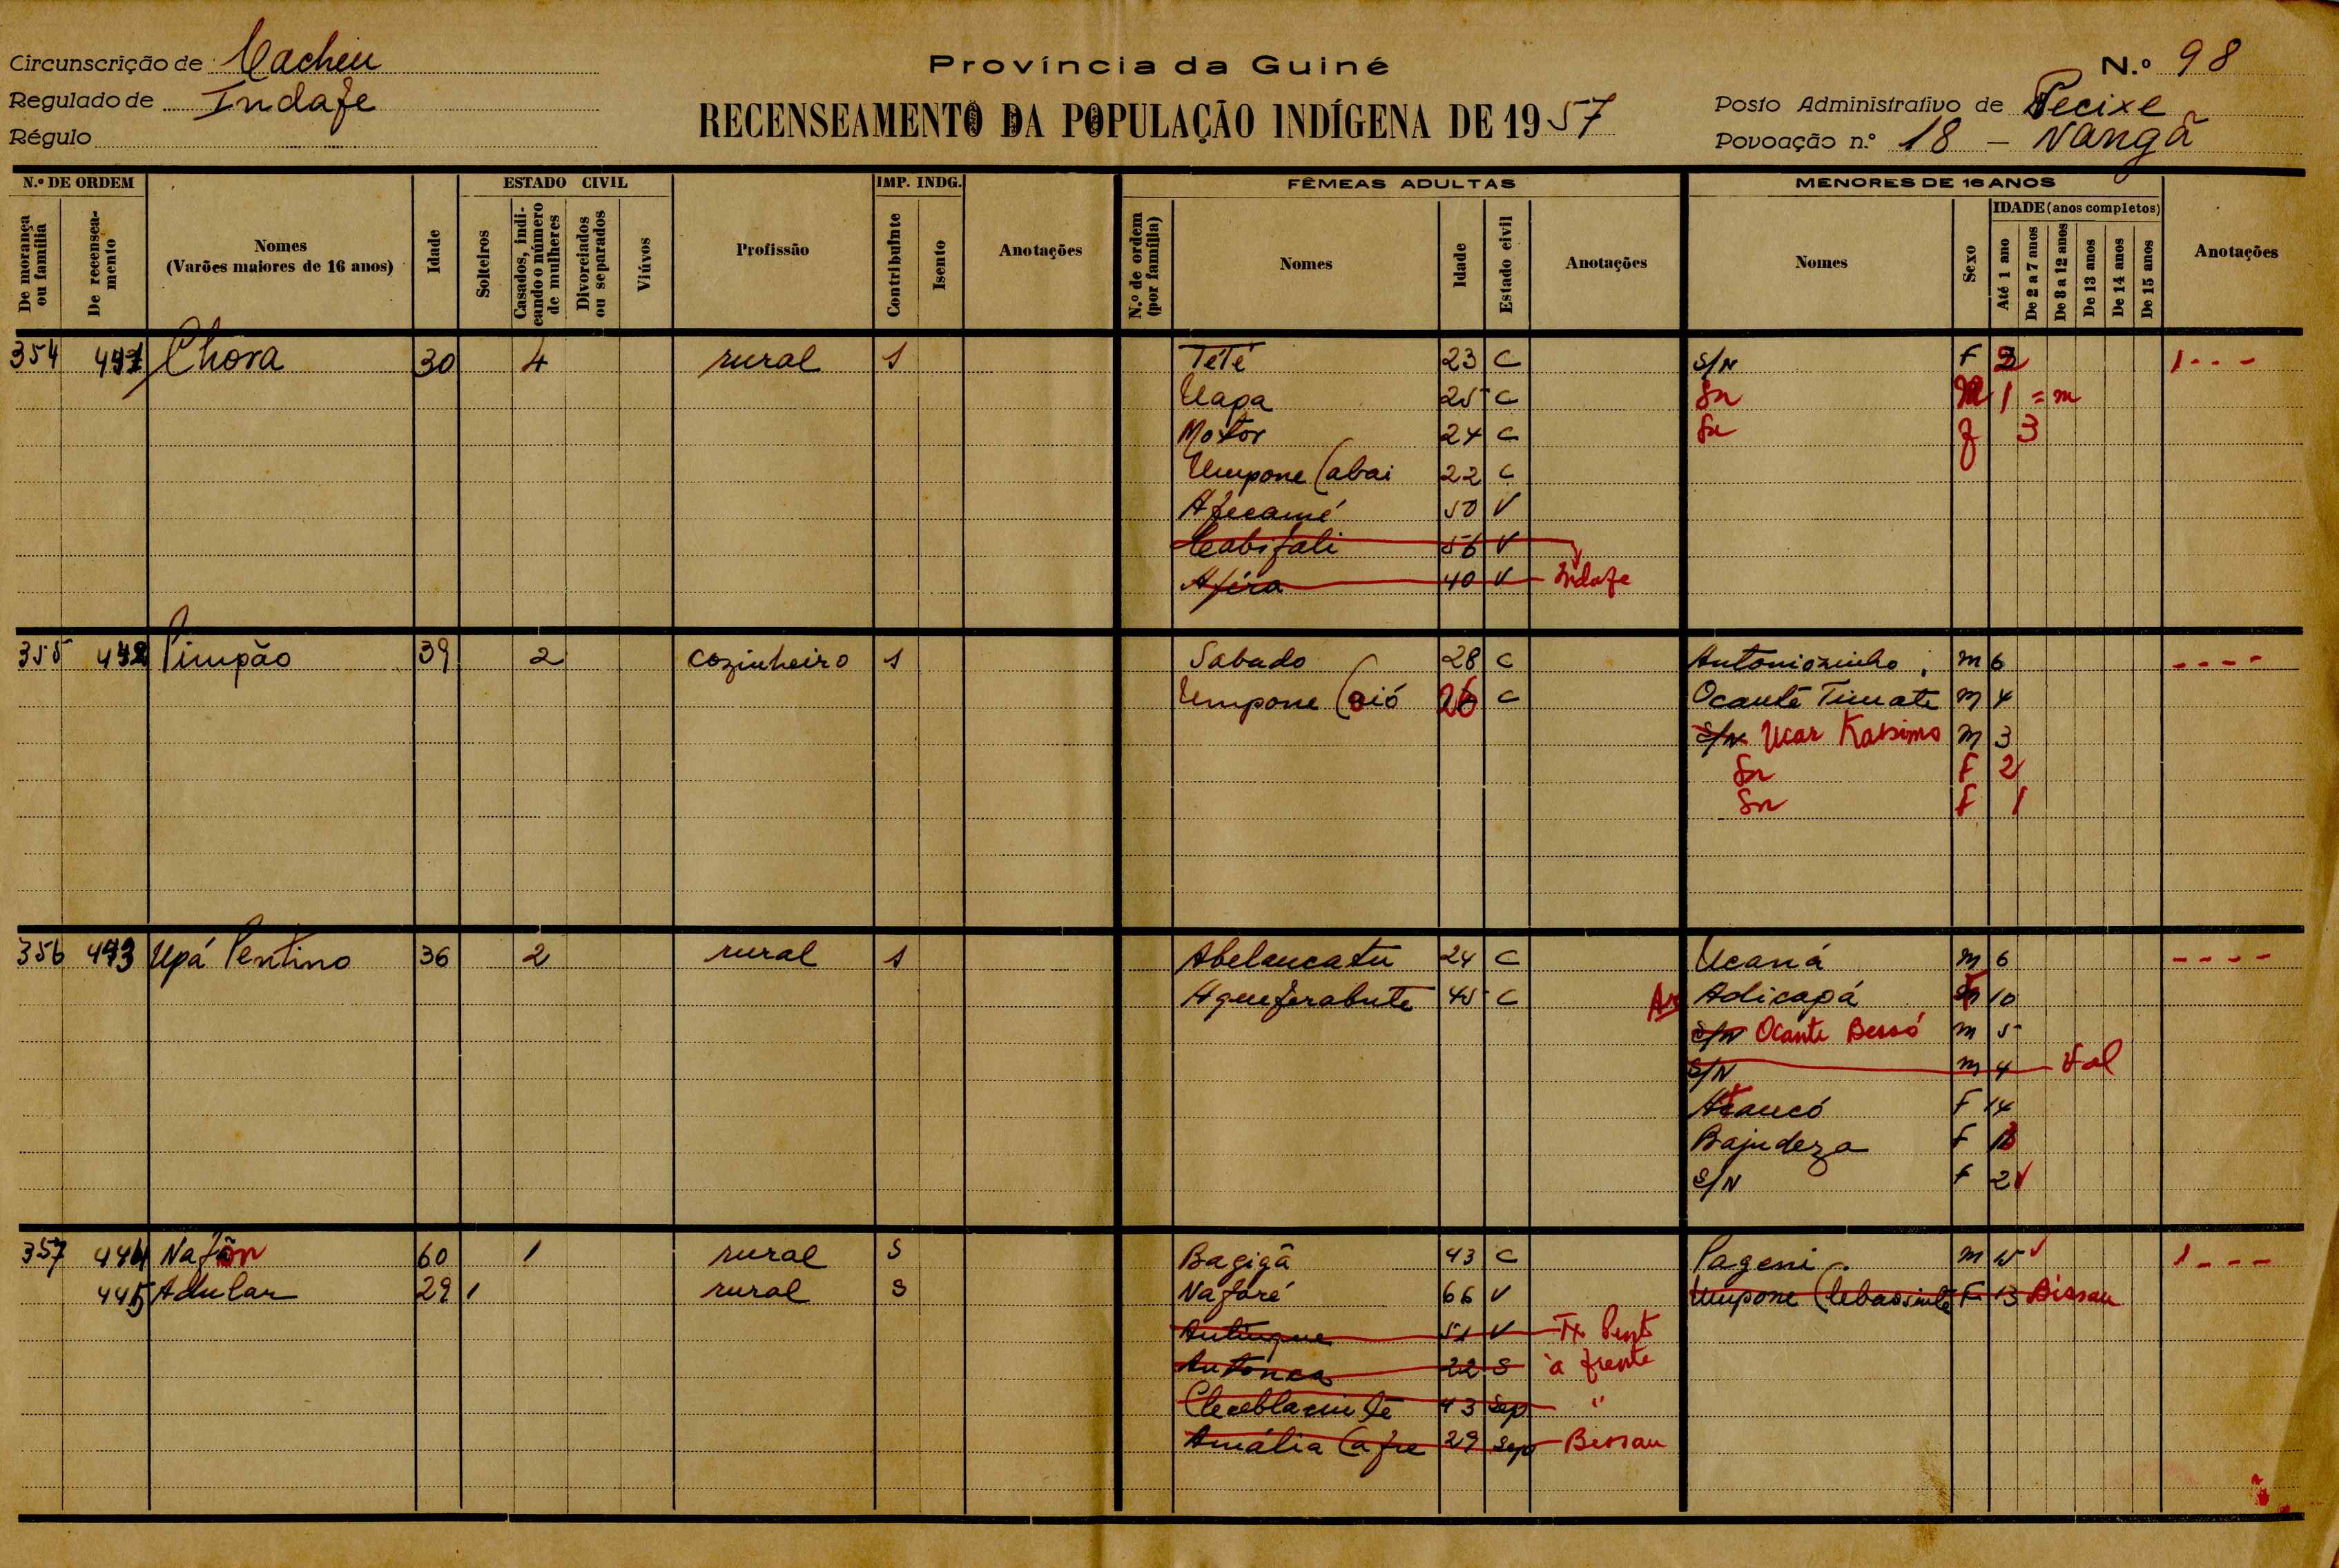 Circunscrição de Cacheu
Regulado de Indafe
Régulo
Província da Guiné
RECENSEAMENTO DA POPULAÇÃO INDÍGENA DE 1957
N.º 98
Posto Administrativo de Pecixe
Povoação n.º 18 - Nangã
N.º DE ORDEM
De morança ou família
De recenseamento
Nomes
(Varões maiores de 16 anos)
Idade
ESTADO CIVIL
Solteiros
Casados, indicando o número de mulheres
Divorciados ou separados
Viúvos
Profissão
IMP. INDG.
Contribuinte
Isento
Anotações
FÊMEAS ADULTAS
N.º de ordem (por família)
Nomes
Idade
Estado civil
Anotações
MENORES DE 16 ANOS
Nomes
Sexo
IDADE (anos completos)
Até 1 ano
De 2 a 7 anos
De 8 a 12 anos
De 13 anos
De 14 anos
De 15 anos
Anotações
354 441 Chora 30 4 rural s Tété 23 C S/N F 1 - - -
Uapa 25 C Sn M 1 = m
Motor 24 C Sn f 3
Umpone Cabai 22 C
Afecamé 50 V
Cabifali 56 V
Afira 40 V Indafe
355 442 Pimpão 39 2 cozinheiro s Sabado 28 C Antoniozinho m 6 - - - -
Umpone 26 C Ocante Timate m 4
S/N Ucar Kassimo m 3
Sn F 2
Sn F 1
356 443 Upá Pentino 36 2 rural s Abelancatu 24 C Ucaná m 6 - - - -
Aqueferabute 45 C Adicapá F 10
S/N Ocante Bessó m 5
S/N m 4 Fal
F 14
Bajudeza F
S/N F 2
357 444 Nafon 60 1 rural S Bagigã 43 C Pageni m 15 1 - - -
445 Adular 29 1 rural S Nafaré 66 V Umpone F 13 Bissau
Antingue 51 V
Antonca 22 S à frente
43 Sep "
Amália Cafre 29 Sep Bissau